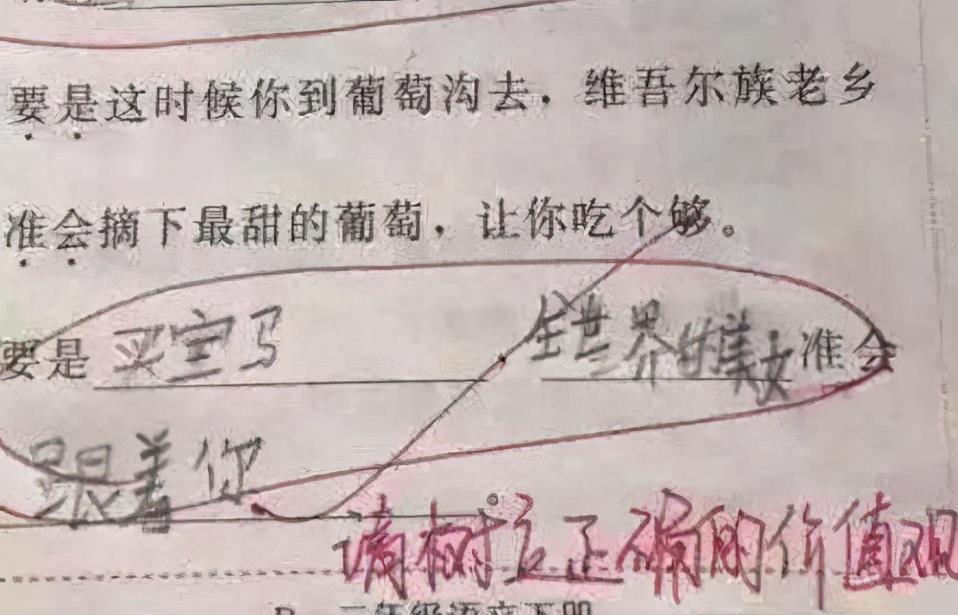 要是这时候你到葡萄沟去，维吾尔族老乡
准会摘下最甜的葡萄，让你吃个够。
要是买宝马 全世界的美女准会
跟着你。
请树立正确的价值观
二年级语文下册